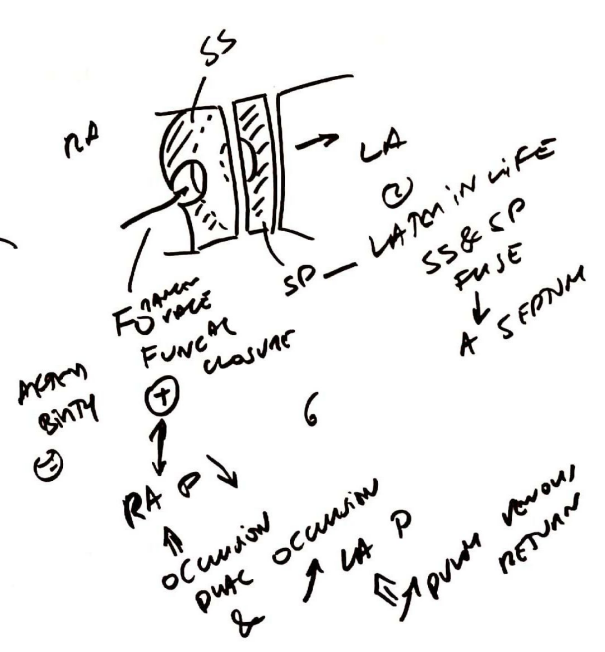 SS
RA
LA
②
SP — LATER IN LIFE
SS & SP
FUSE
↓
A SEPTUM
FORAMEN
OVALE
FUNCAL
CLOSURE
AFTER
BIRTH
+
6
RA P ↘
OCCLUSION
PLAC OCCLUSION
& ↑ LA P
↑ PULM VENOUS
RETURN